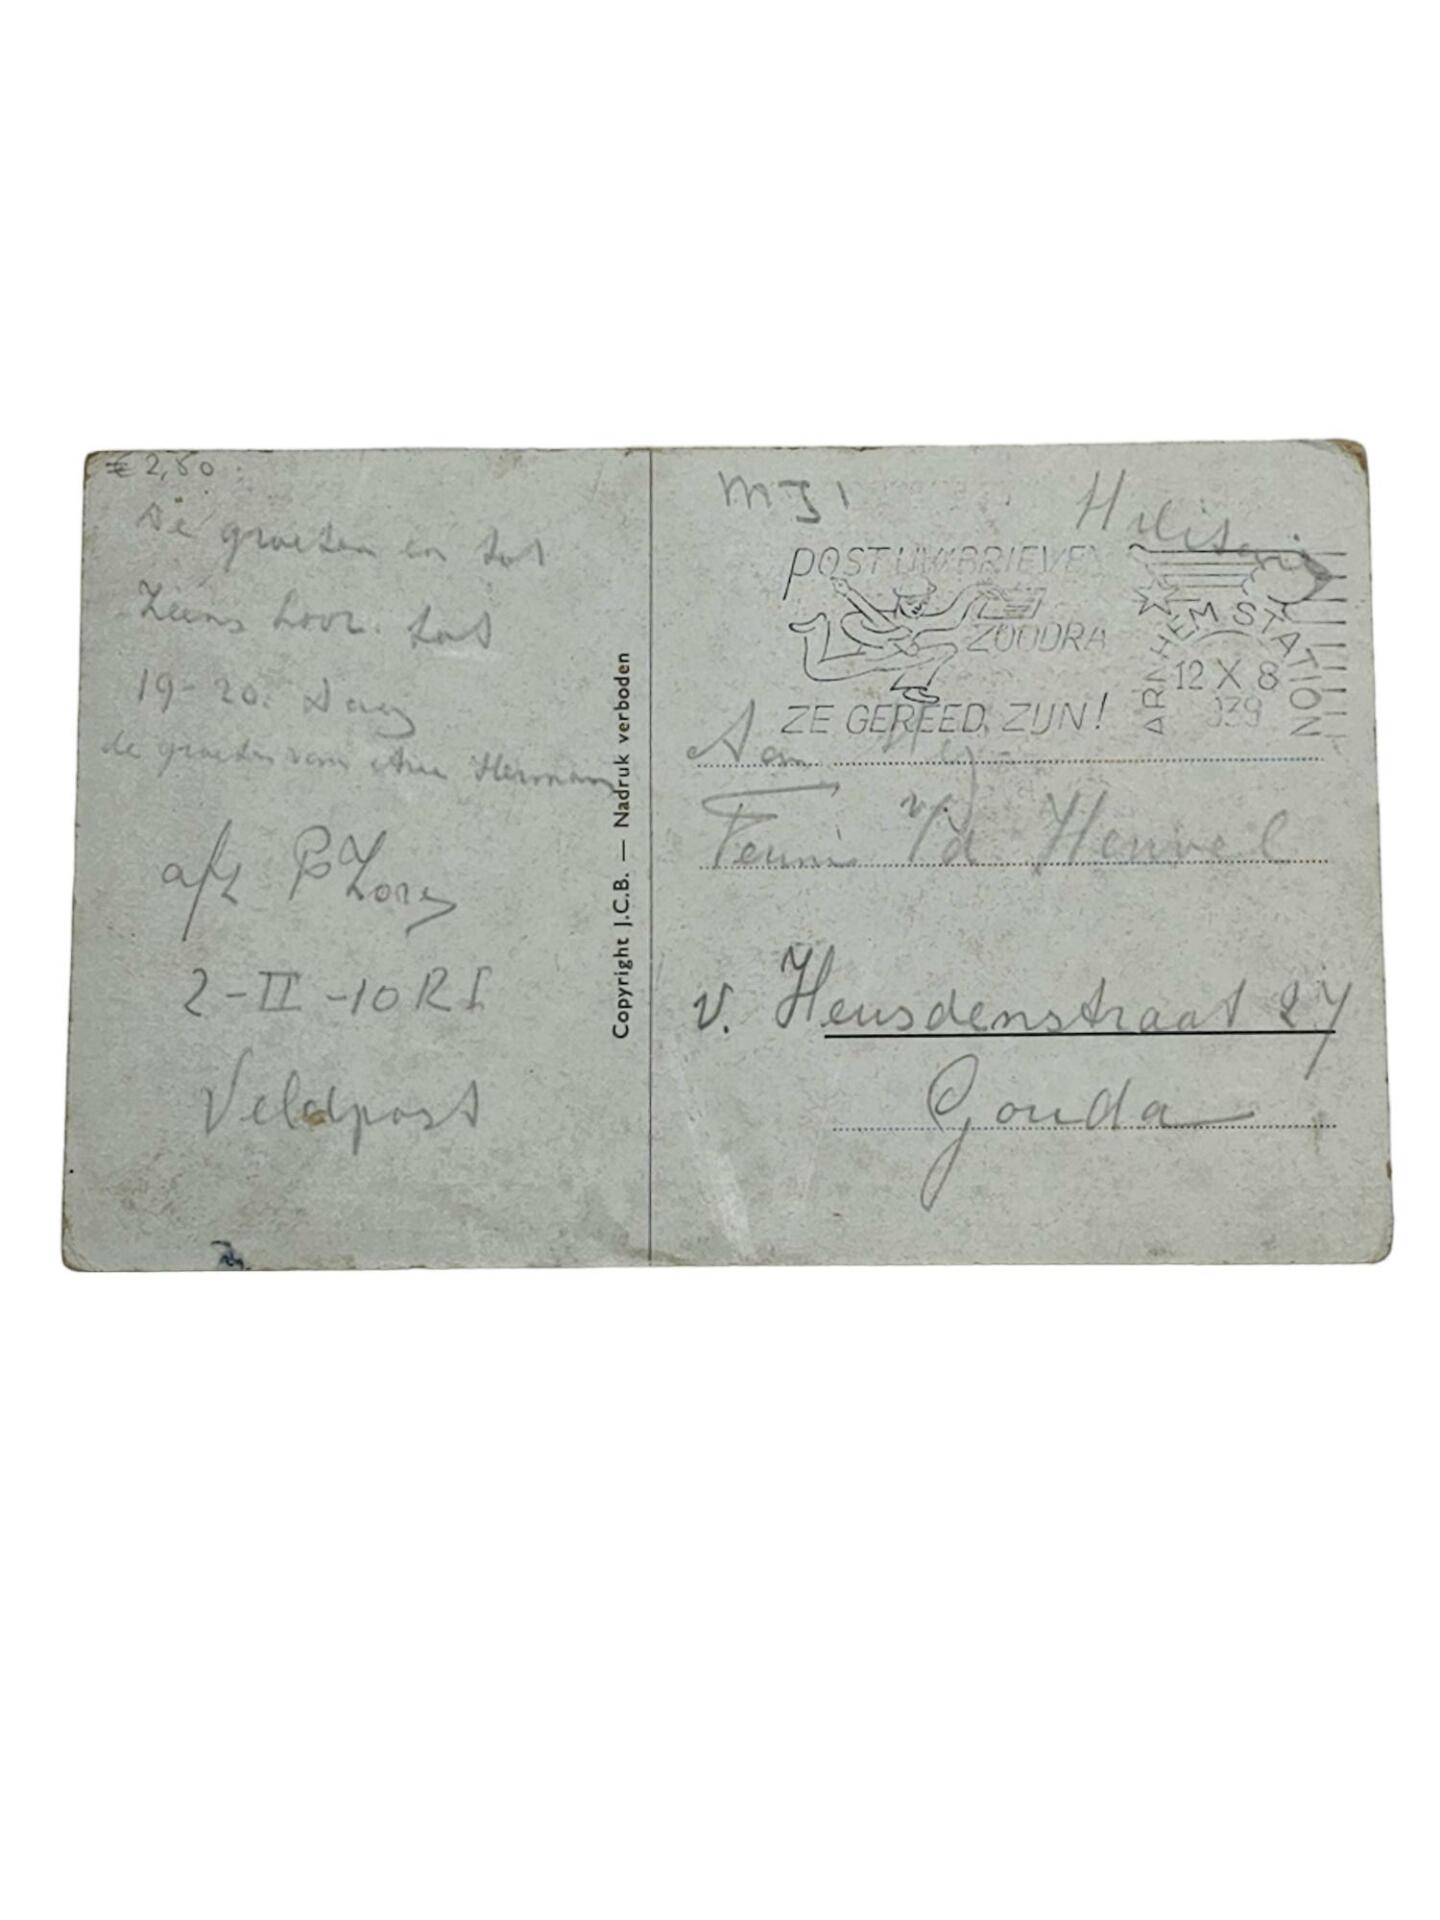 € 2,50
de groeten en tot
ziens hoor. tot
19-20. Dag
de groeten van Hermans
afz P
2-II-10 R I
Veldpost
Copyright J.C.B. — Nadruk verboden
Militair
POST UW BRIEVEN
ZOODRA
ZE GEREED ZIJN!
ARNHEM STATION
12 X 8
939
Aan Mej
v/d Heuvel
v. Heusdenstraat 27
Gouda